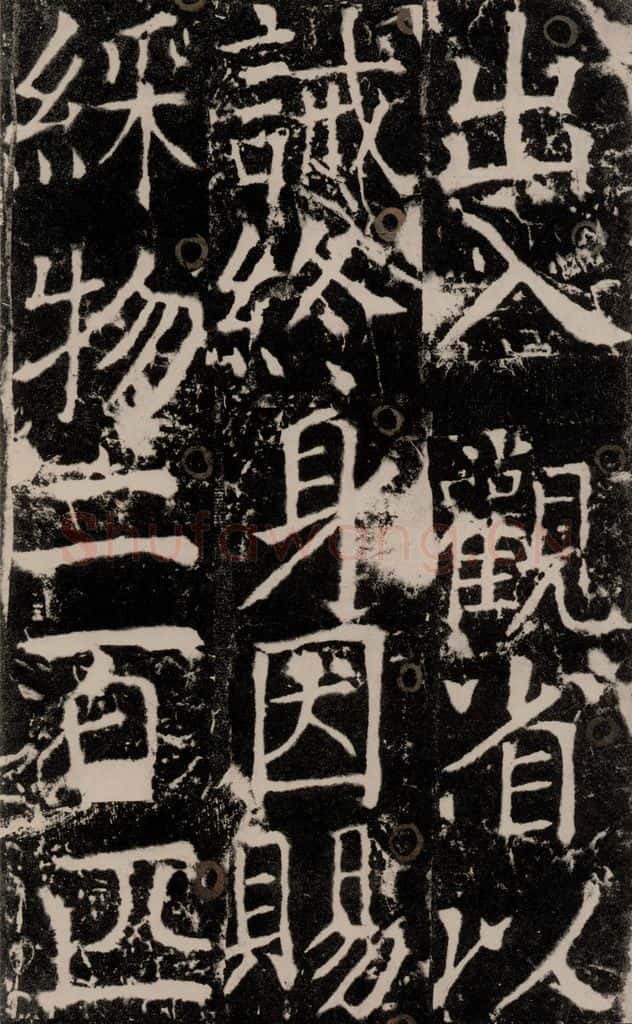 出入觀省以
誡終身因賜
綵物二百匹
Shufawang.CN